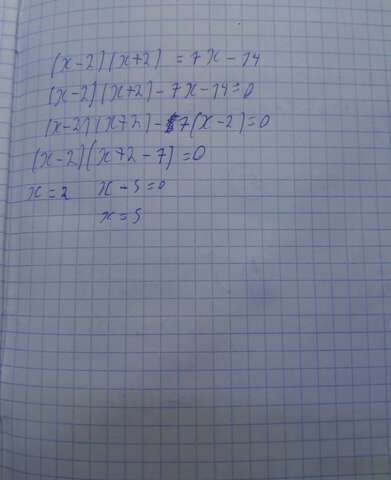 (x-2)(x+2) = 7x - 14
(x-2)(x+2) - 7x - 14 = 0
(x-2)(x+2) - 7(x-2) = 0
(x-2)(x+2-7) = 0
x = 2 x - 5 = 0
x = 5